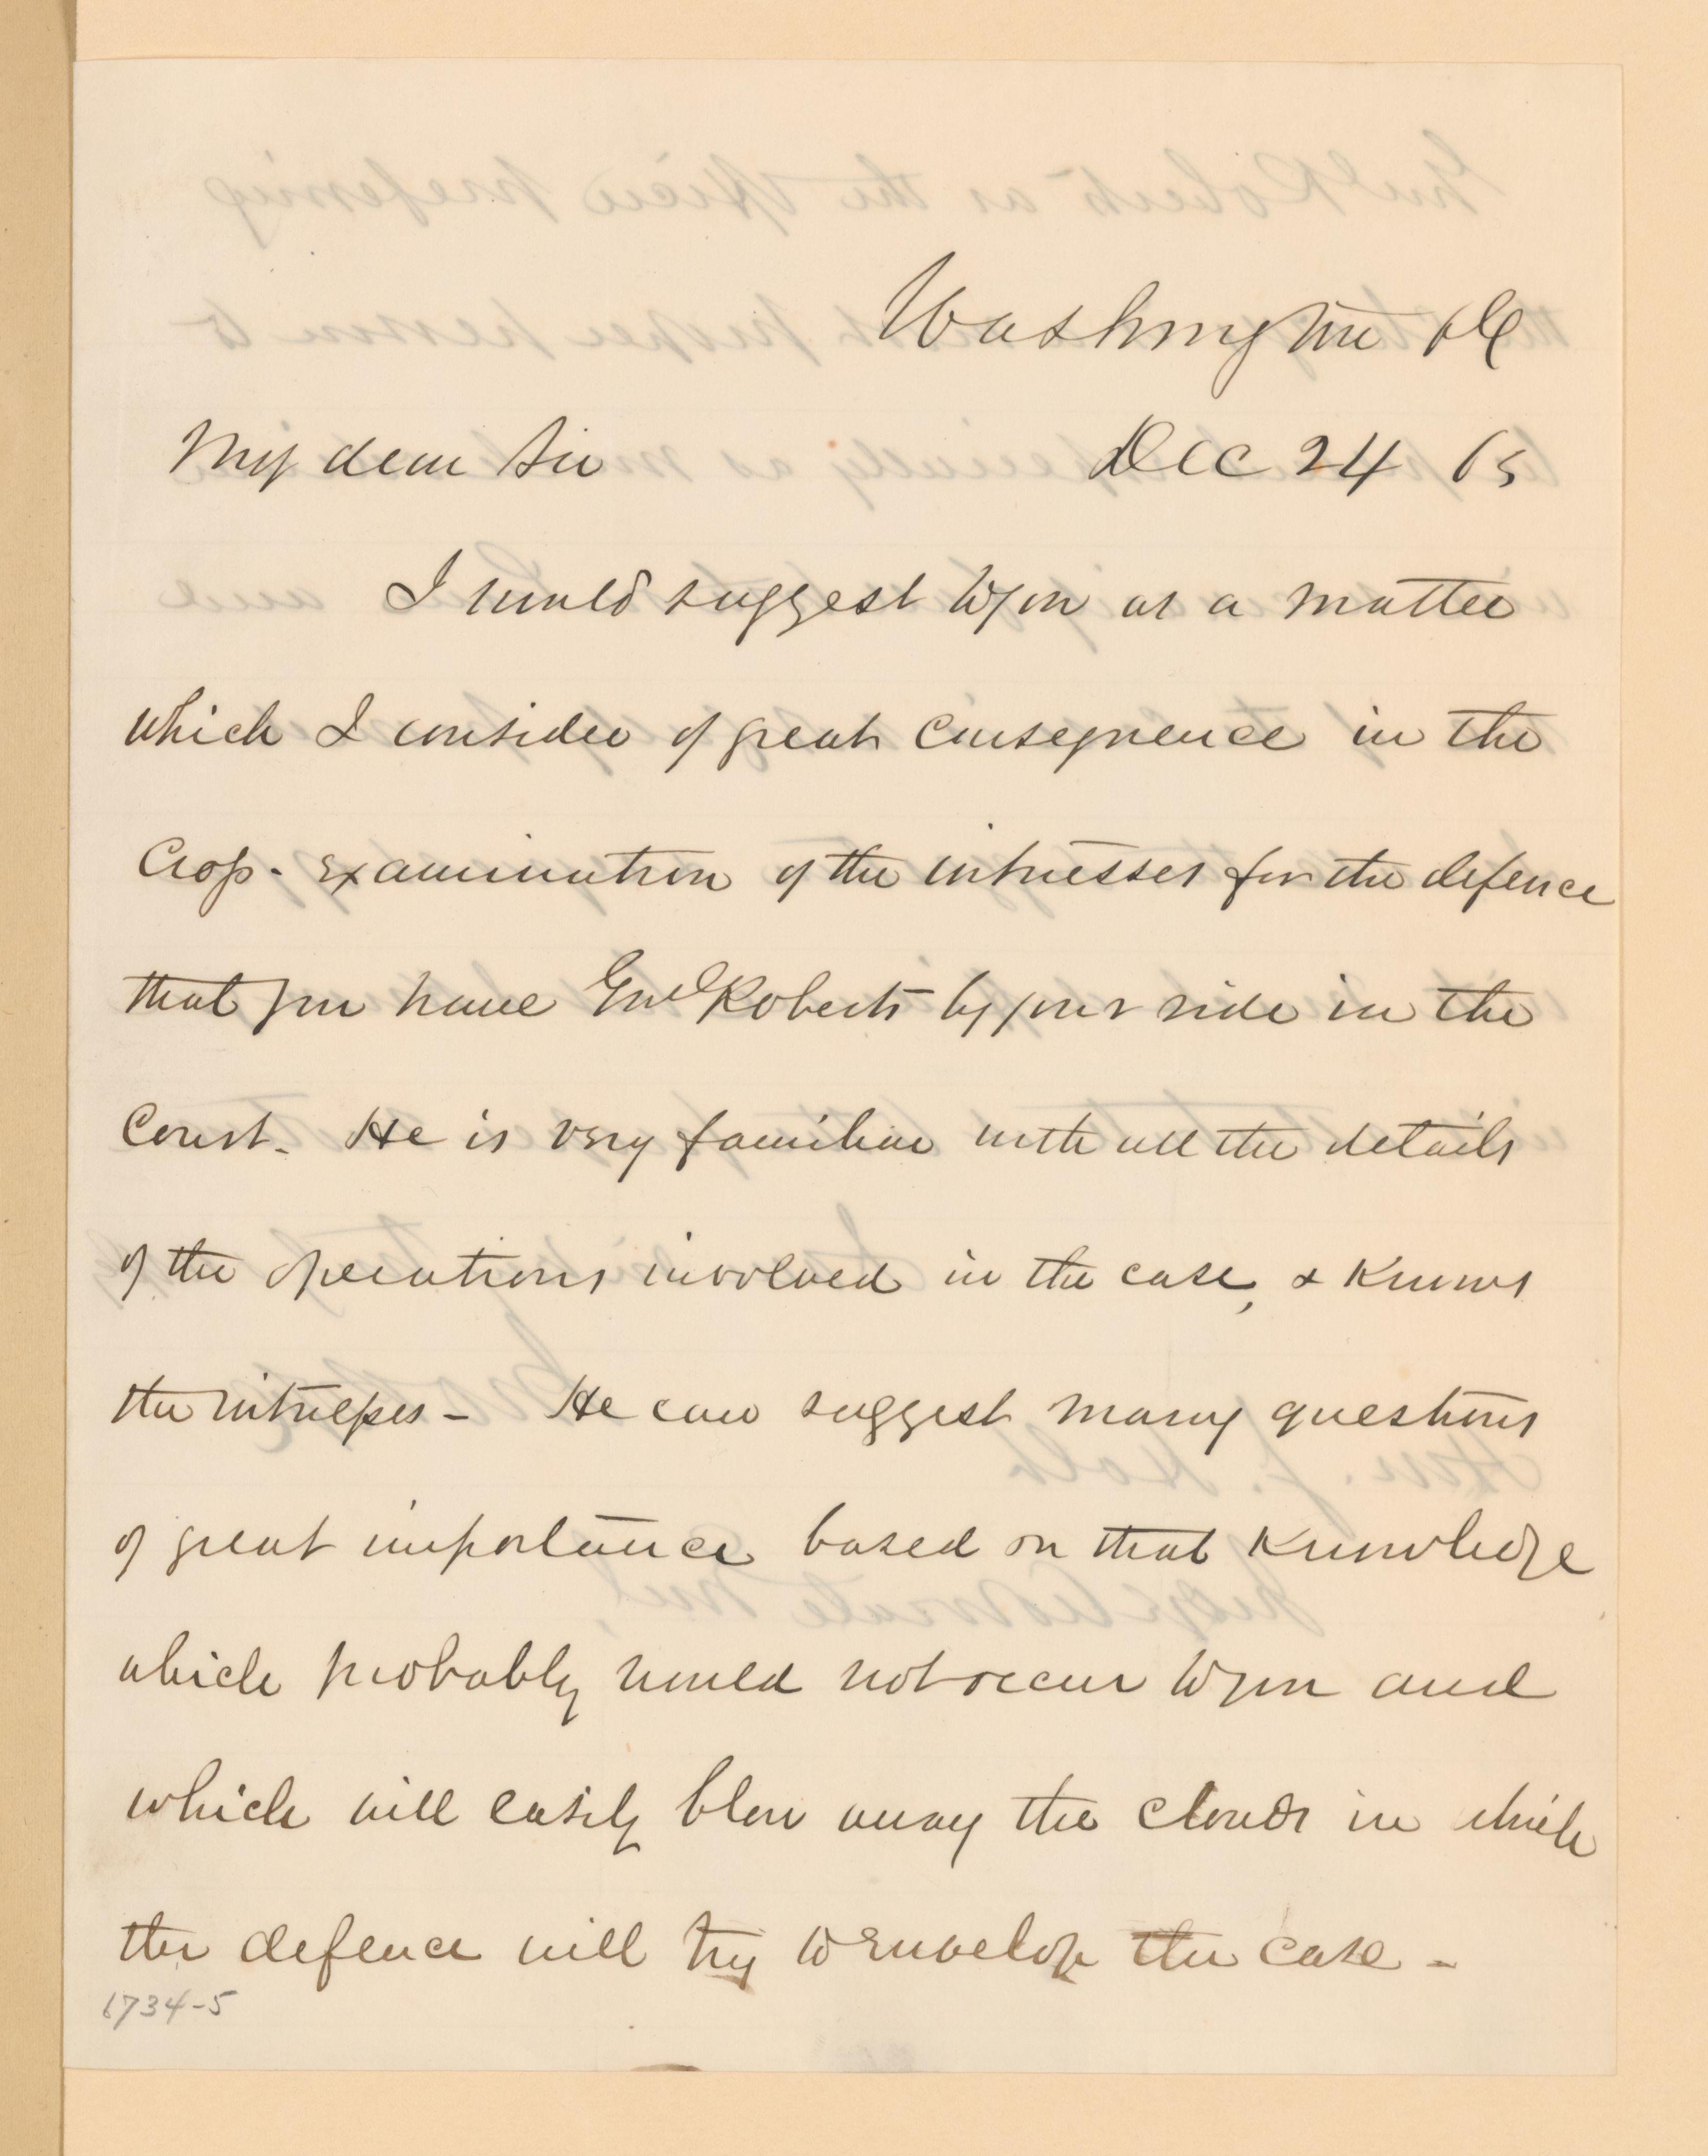 Washington DC
My dear Sir Dec 24 65
I would suggest to you as a matter
which I consider of great consequence in the
Cross-examination of the witnesses for the defence
that you have Genl Roberts by your side in the
Court. He is very familiar with all the details
of the operations involved in the case, & knows
the witnesses - He can suggest many questions
of great importance based on that knowledge
which probably would not occur to you and
which will easily blow away the clouds in which
the defence will try to envelop the case -
1734-5